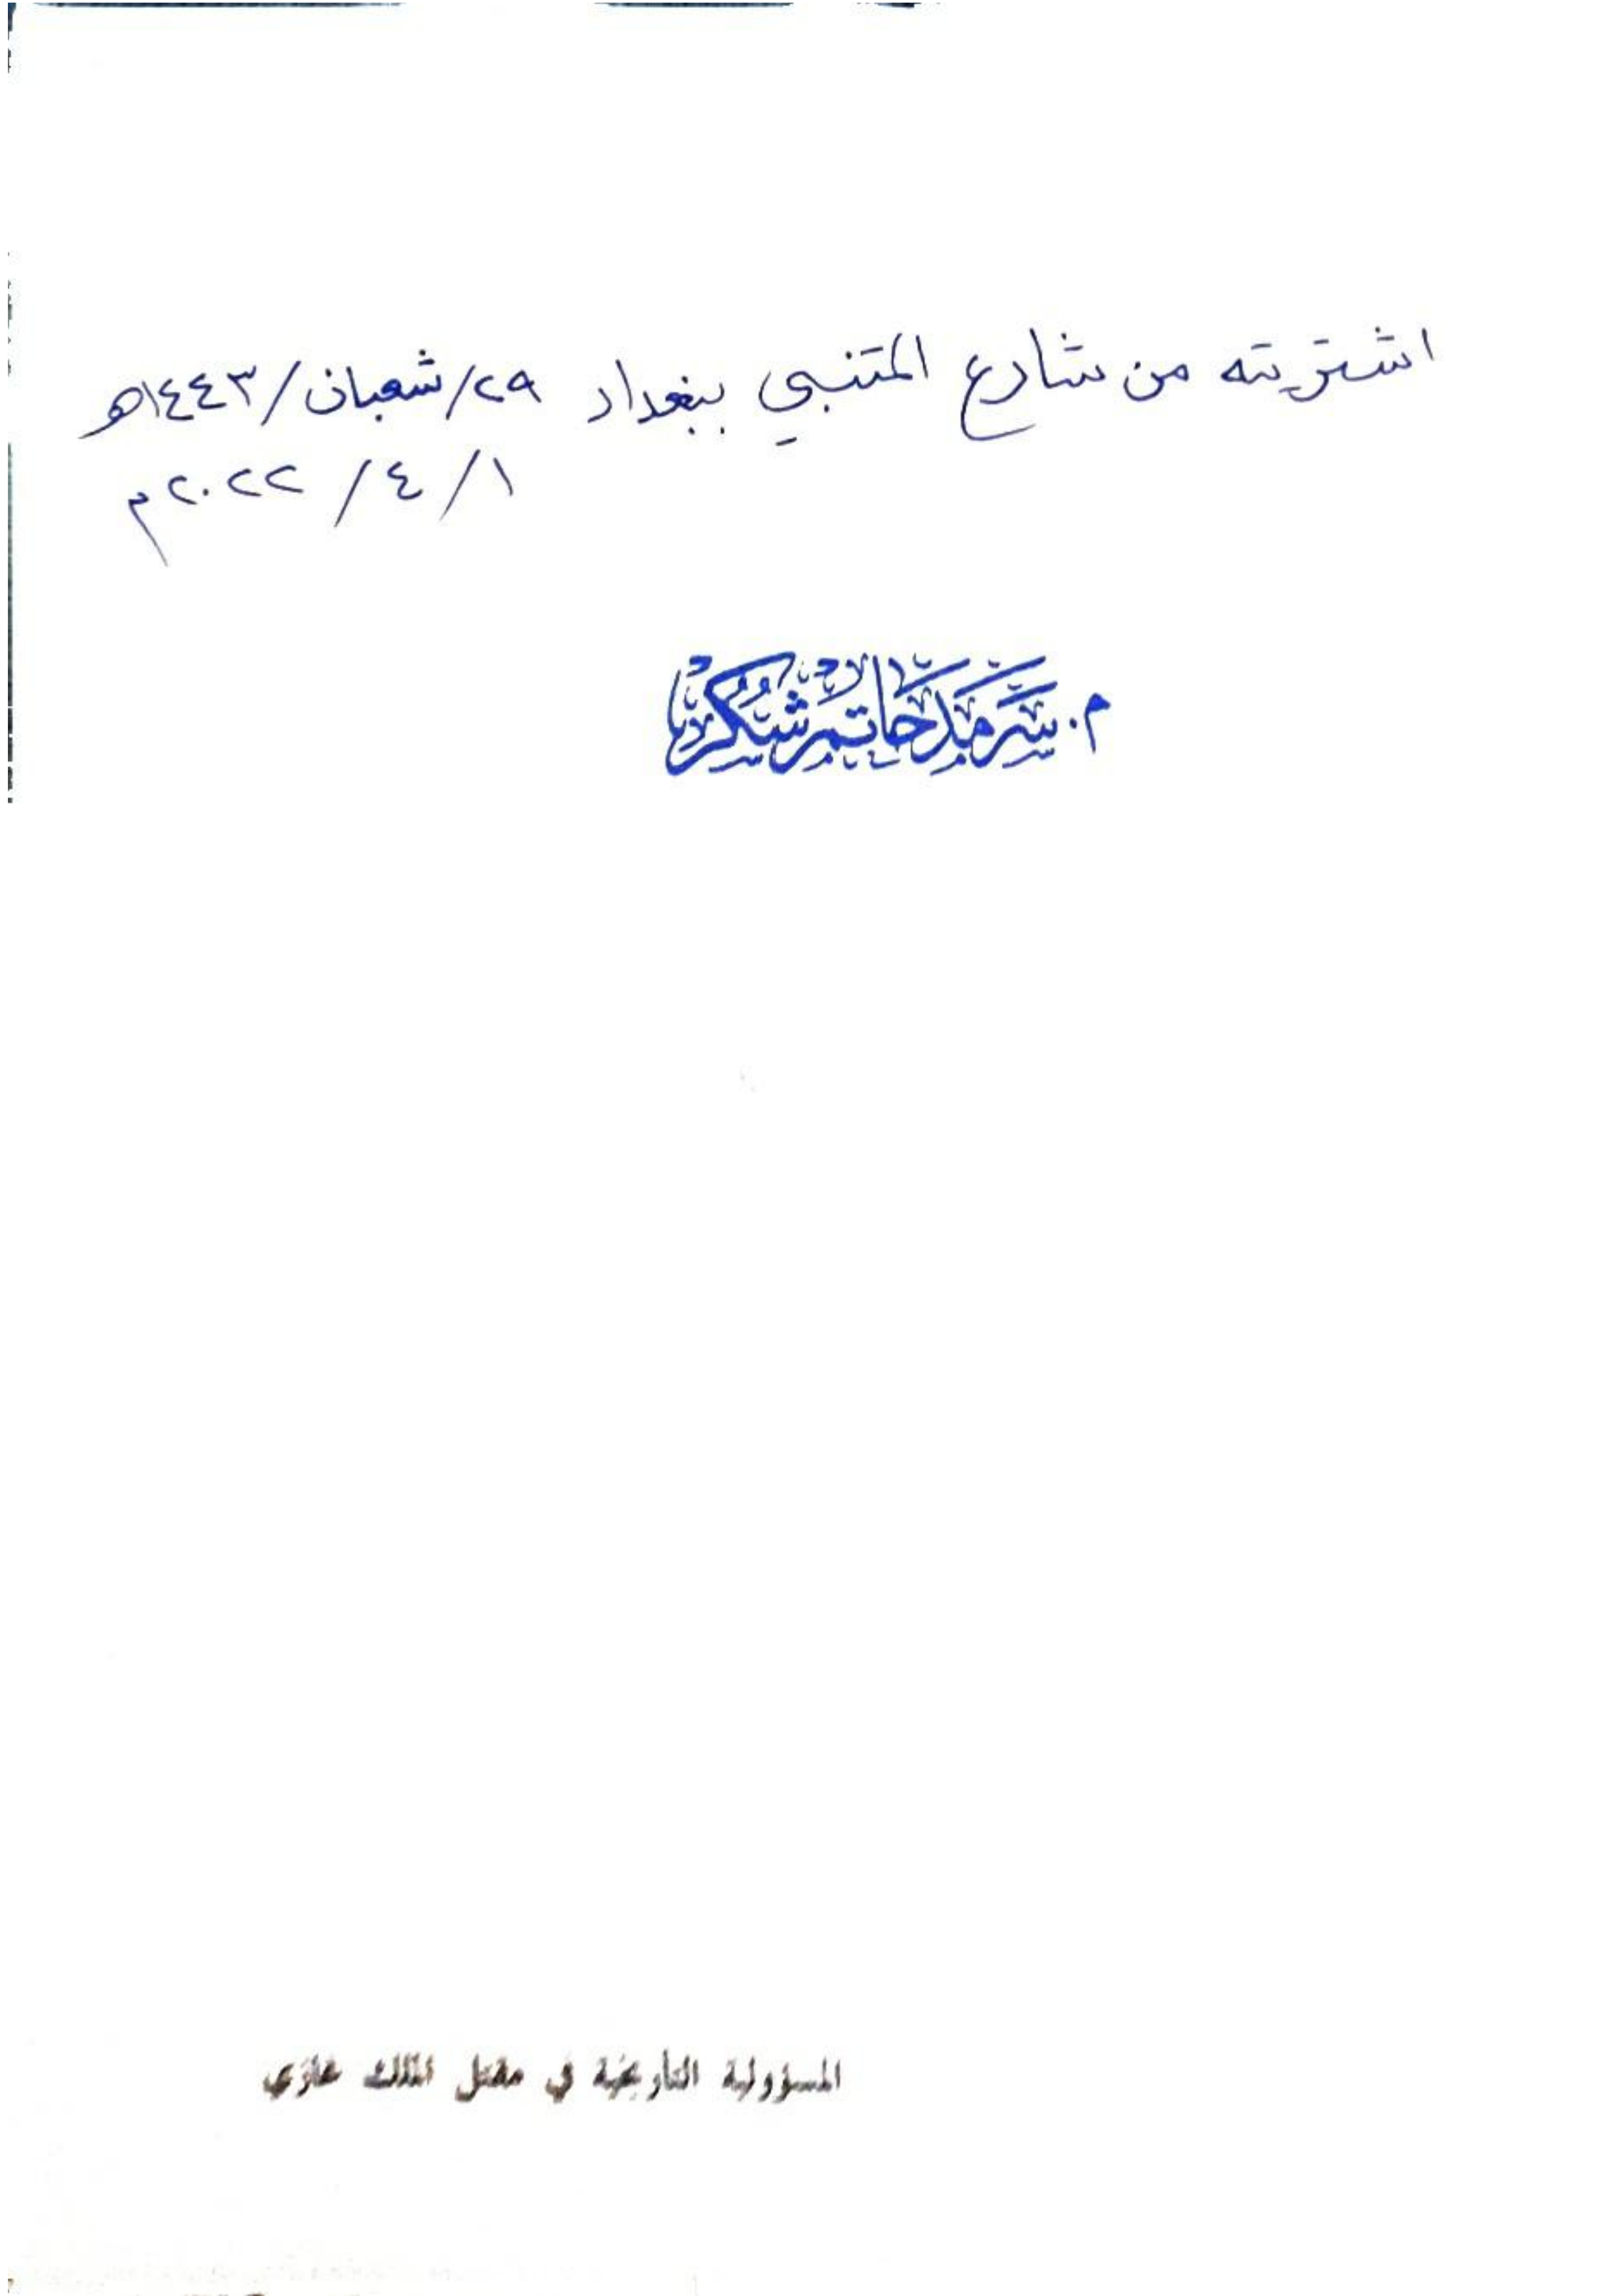 اشتريته من شارع المتنبي ببغداد ٢٩/شعبان/١٤٤٣هـ
١/٤/٢٠٢٢م
م. سرمد حاتم شكر
المسؤولية التأريخية في مقتل الملك غازي